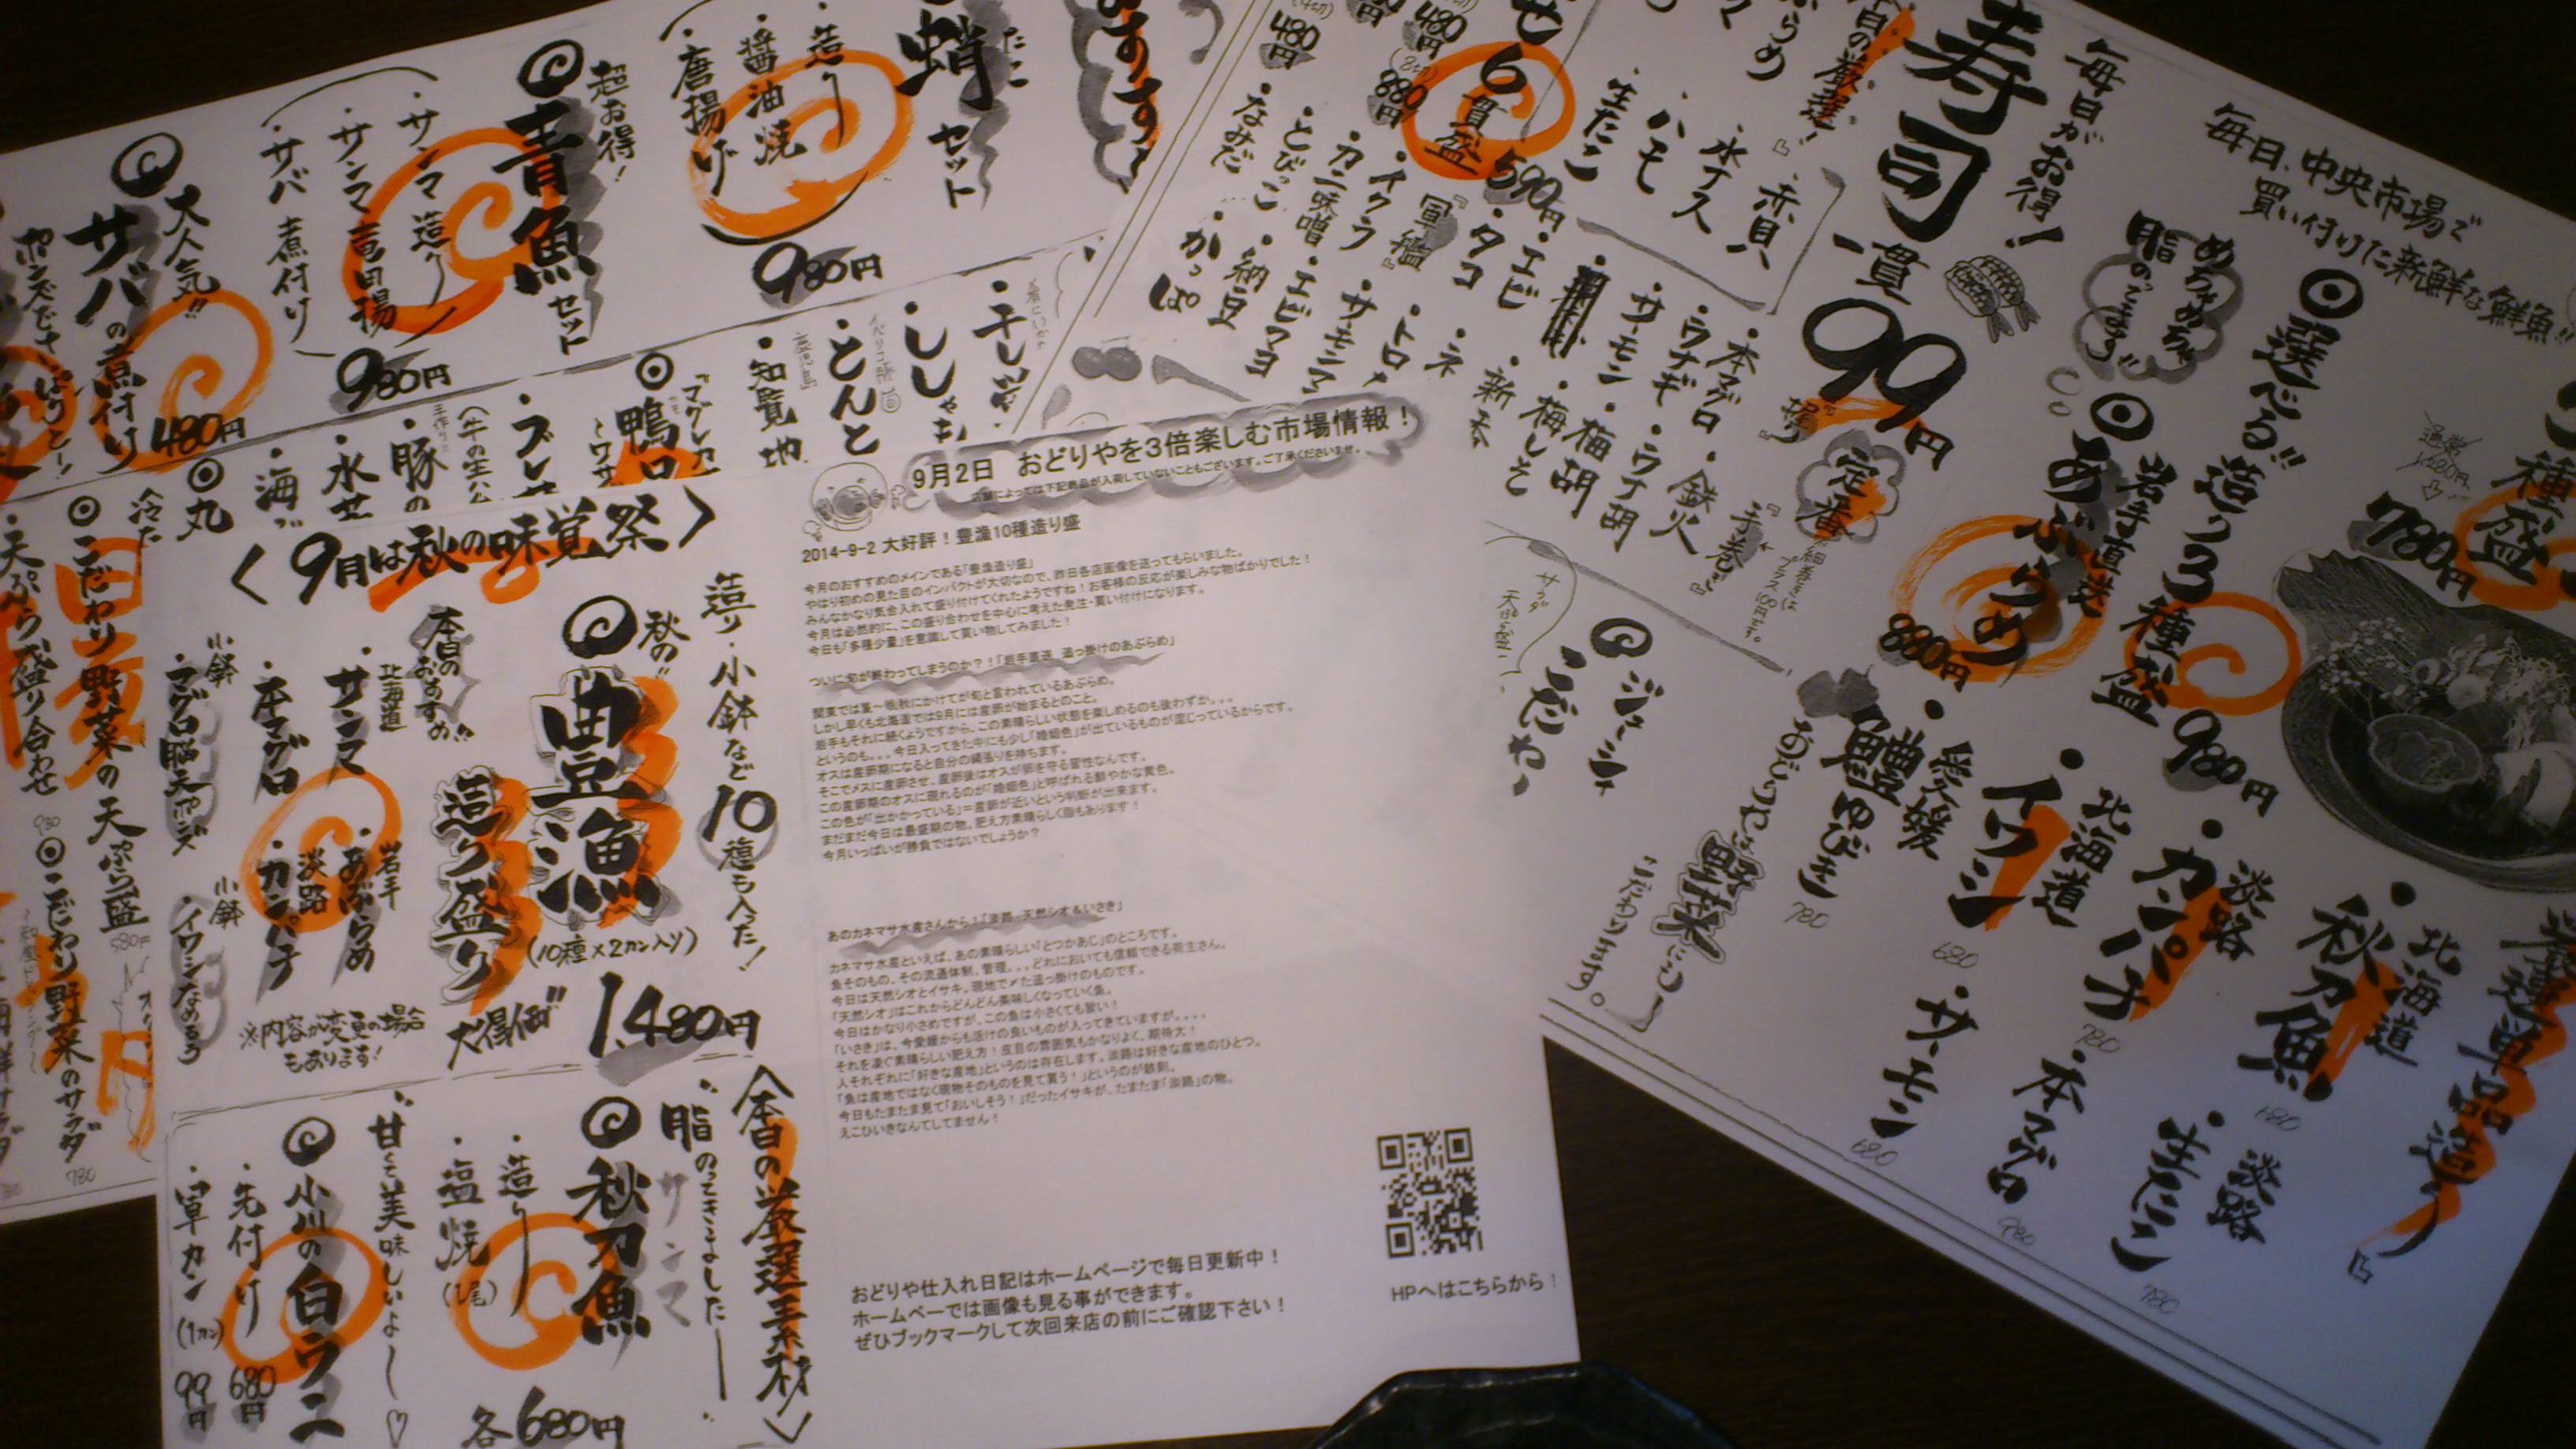 おすすめ
たこ
蛸セット
・造り
・醤油焼
・唐揚げ
980円
超お得!
青魚セット
・サンマ造り
・サンマ竜田揚
・サバ煮付け
980円
大人気!!
サバの煮付け
480円
・干し
・ししゃも
・とんと
・知覧
『マグレカ
鴨ロ
・ブレ
手作り
・豚の
・水
・海
丸
冷た
こだわり野菜の天ぷら盛
580円
・天ぷら盛り合わせ
930
こだわり野菜のサラダ
780
〈9月は秋の味覚祭〉
造り・小鉢など10種も入った!
秋の
豊漁
造り盛り
(10種×2カン入り)
大得価
1,480円
本日のおすすめ!!
北海道
・サンマ
・本マグロ
小鉢
・マグロ脳天ポンズ
岩手
・あぶらめ
淡路
・カンパチ
小鉢
・イワシなめろう
※内容が変更の場合
もあります!
〈本日の厳選素材〉
"脂のってきましたー
サンマ
秋刀魚
・造り
・塩焼(1尾)
各680円
"甘くて美味しいよー♡
小川の白ウニ
・先付け 680円
・軍カン(1カン) 99円
9月2日 おどりやを3倍楽しむ市場情報!
店舗によっては下記商品が入荷していないこともございます。ご了承くださいませ。
2014-9-2 大好評!豊漁10種造り盛
今月のおすすめのメインである「豊漁造り盛」
やはり初めの見た目のインパクトが大切なので、昨日各店画像を送ってもらいました。
みんなかなり気合入れて盛り付けてくれたようですね!お客様の反応が楽しみな物ばかりでした!
今月は必然的に、この盛り合わせを中心に考えた発注・買い付けになります。
今日も「多種少量」を意識して買い物してみました!
ついに旬が終わってしまうのか?!「岩手直送 追っ掛けのあぶらめ」
関東では夏~晩秋にかけてが旬と言われているあぶらめ。
しかし早くも北海道では9月には産卵が始まるとのこと。
岩手もそれに続くようですから、この素晴らしい状態を楽しめるのも後わずか。。。
というのも。。。今日入ってきた中にも少し「婚姻色」が出ているものが混じっているからです。
オスは産卵期になると自分の縄張りを持ちます。
そこでメスに産卵させ、産卵後はオスが卵を守る習性なんです。
この産卵期のオスに現れるのが「婚姻色」と呼ばれる鮮やかな黄色。
この色が「出かかっている」=産卵が近いという判断が出来ます。
まだまだ今日は最盛期の物。肥え方素晴らしく脂もあります!
今月いっぱいが勝負ではないでしょうか?
あのカネマサ水産さんから!「淡路・天然シオ&いさき」
カネマサ水産といえば、あの素晴らしい「とつかあじ」のところです。
魚そのもの、その流通体制、管理。。。どれにおいても信頼できる荷主さん。
今日は天然シオとイサキ。現地で〆た追っ掛けのものです。
「天然シオ」はこれからどんどん美味しくなっていく魚。
今日はかなり小さめですが、この魚は小さくても旨い!
「いさき」は、今愛媛からも活けの良いものが入ってきていますが。。。。
それを凌ぐ素晴らしい肥え方!皮目の雰囲気もかなりよく、期待大!
人それぞれに「好きな産地」というのは存在します。淡路は好きな産地のひとつ。
「魚は産地ではなく現物そのものを見て買う!」というのが鉄則。
今日もたまたま見て「おいしそう!」だったイサキが、たまたま「淡路」の物。
えこひいきなんてしてません!
おどりや仕入れ日記はホームページで毎日更新中!
ホームペーでは画像も見る事ができます。
ぜひブックマークして次回来店の前にご確認下さい!
HPへはこちらから!
毎日がお得!
寿司
一貫
99円
本日の厳選!
・赤貝
・水ナス
・ハモ
・生たこ
6貫盛
590円
480円
480円
880円
定番
『握り』
・本マグロ
・ウナギ
・サーモン
・エビ
・タコ
『軍艦』
・イクラ
・カニ味噌
・とびっこ
・なみだ
・トロ
・サーモンマ
・エビマヨ
・納豆
・かっぱ
『手巻き』
プラス100円です。
・鉄火
・ウナ胡
・梅胡
・梅しそ
・新香
・ネ
ジューシー
こだわ
おどりやは野菜にも
こだわってます。
毎日、中央市場で
買い付けた新鮮な鮮魚!!
種盛
通常
1,280円
780円
選べる!!造り3種盛
980円
めちゃめちゃ
脂のってます!!
岩手直送
あぶらめ
880円
厳選単品造り
北海道
・秋刀魚
680
淡路
・カンパチ
780
北海道
・イワシ
680
愛媛
・鱧ゆびき
780
淡路
・生たこ
780
・本マグロ
980
・サーモン
680